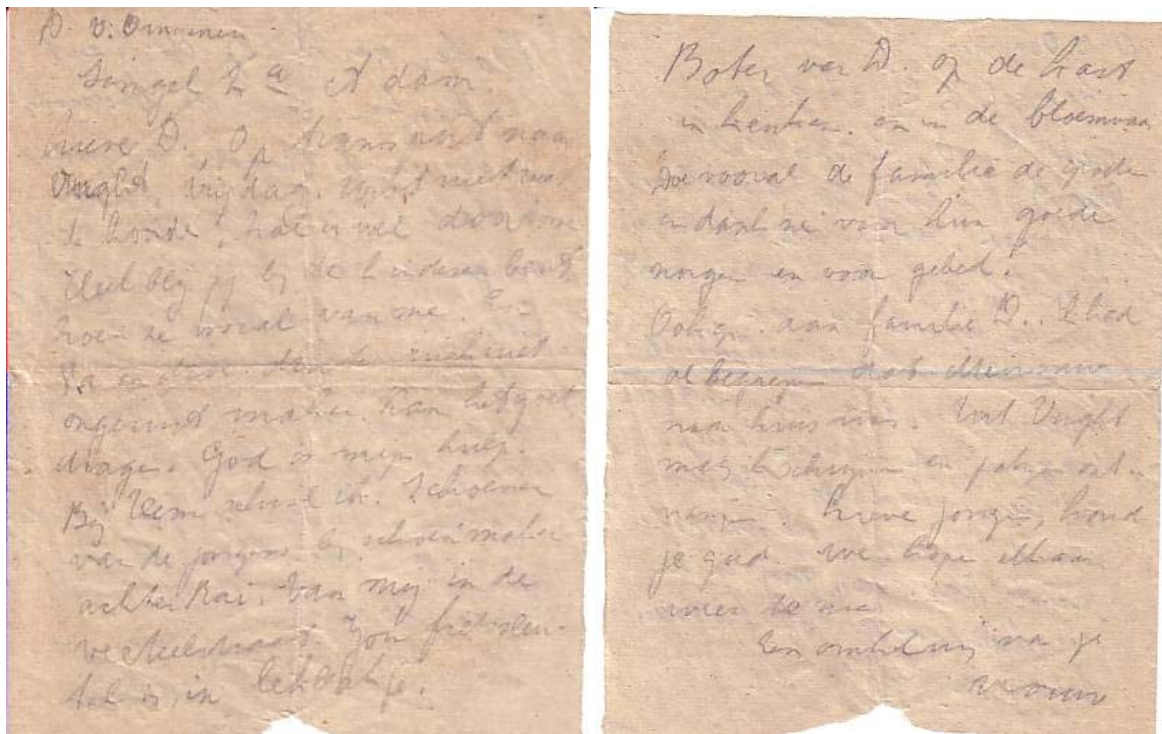 D. v. Ommeren
Singel 2a A'dam.
Lieve D., Op transport naar
Vught, vrijdag. niet
te
Heel blij jij bij de kinderen bent
zoen ze vooral van me. En
ongerust maken. Kan het goed
dragen. God is mijn hulp.
Bij Hem schuil ik. Schoenen
van de jongens bij schoenmaker
achter Rai. Van mij in de
Jou fietssleu-
tel is in
Boter van D. op de kast
in keuken. en in de bloemvaas
Doe vooral de familie de groeten
en dank ze voor hun goede
zorgen en voor gebed.
Ook gr. aan familie D.. Ik had
al begrepen dat
naar huis was. Uit Vught
mag ik schrijven en ont-
vangen. Lieve jongen, houd
je goed. We hopen elkaar
weer te zien
Een omhelzing van je
vrouw